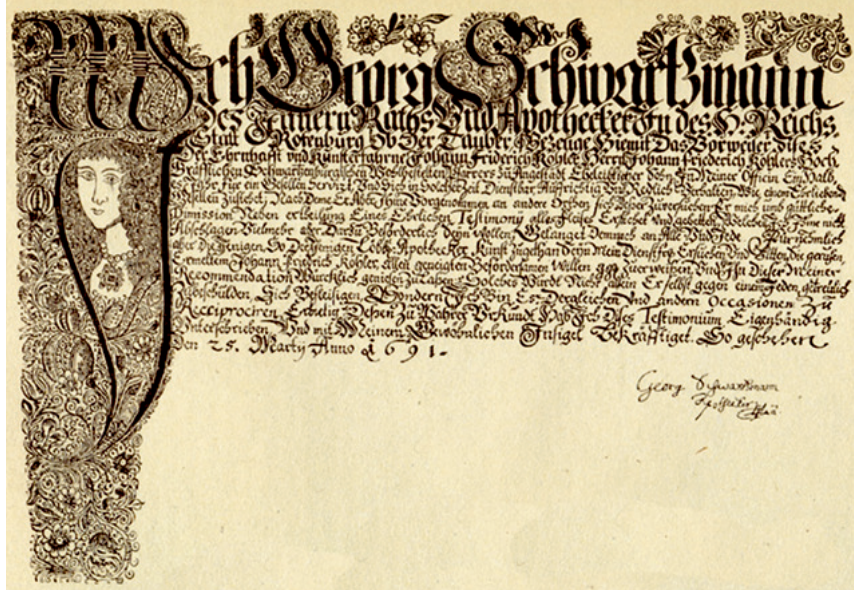 Ich Georg Schwartzmann
Des Innern Raths Und Apothecker In des H: Reichs.
Statt Rotenburg Ob Der Tauber Bezeuge Hiemit Das Vorweiser dises
Der Ehrnhafft und Kunsterfahrne Johann Friderich Köhler Herrn Johann Friederich Köhlers Hoch
Gräfflichen Schwartzenburgischen Pfarrers zu Ehleiblicher Sohn In Meiner Officin Ein Halb
Jahr für ein Gesellen Servirt Und Sich in Solcher Zeit Dienstbar Auffrichtig Und Redlich Verhalten Wie einem Ehrliebend
Gesellen Zustehet, Nach Deme Er Aber Ihme Vorgenohmen an andere Orthen sich Er mich umb güttliche
Dimission Neben ertheilung Eines Ehrlichen Testimony alles Fleises Ersuchet und gebetten, Welches Ich Ihme nicht
Abschlagen Vielmehr aber Darzu Beförderlich Seyn Wollen, Gelanget Demnach an Alle Und Jede
aber die Jenigen So Derjenigen Löbl: Apothecker Kunst Zugethan Seyn Mein Dienstfr: Ersuchen Und Bitten Die geruhen
ermeltem Johann Friedrich Köhler, allen geneigten Befördersamen Willen Zuerweisen, Und Ihn Dieser Meiner
Recommendation Würcklich geniesen Zu Laßen, Solches Würdt Nicht allein Er selbst gegen einem Jeden
Zubeschulden Sich Befleisigen, Sondern Ich Bin Es Dergleichen Und andern Occasionen Zu
Reciprociren Erbietig, Dessen Zu Wahrer Urkundt Hab Ich Dises Testimonium Eigenhändig
Unterschrieben Und mit Meinem Gewöhnlichen Insigel Bekräfftiget. So geschehen
Den 25. Martij Anno 1691.
Georg Schwartzmann
Apotheker